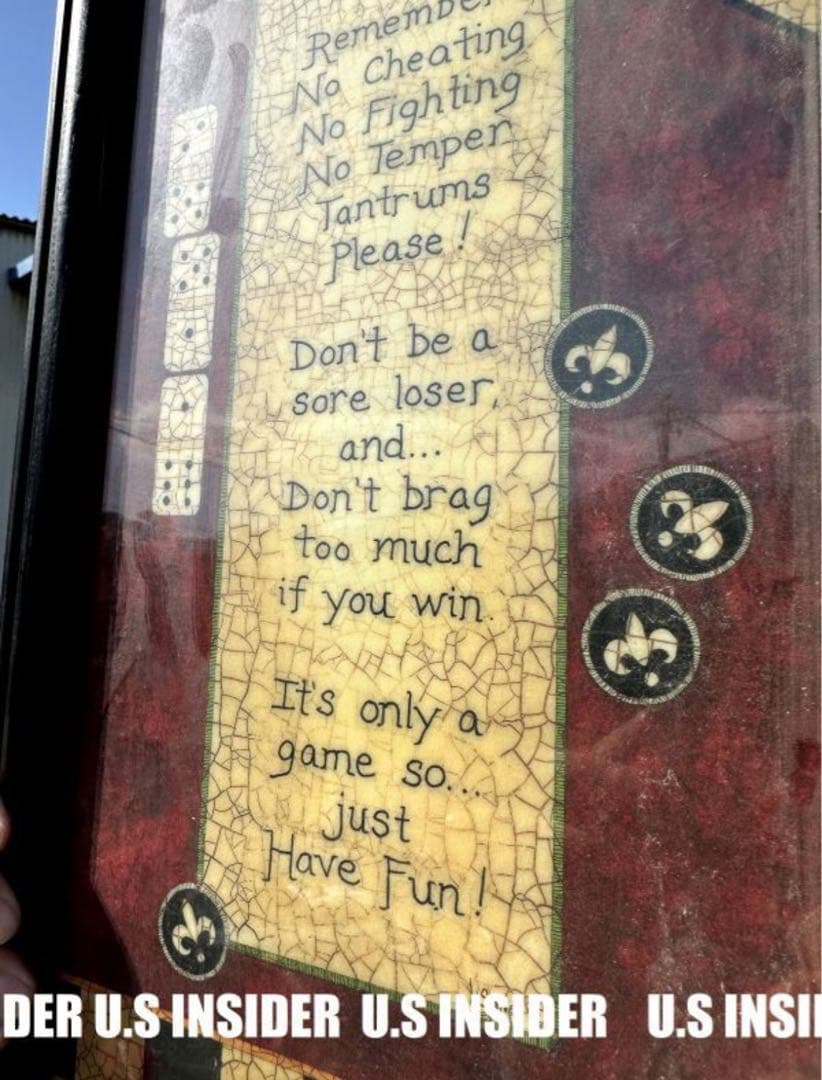 Remember
No Cheating
No Fighting
No Temper
Tantrums
Please!
Don't be a
sore loser,
and...
Don't brag
too much
if you win.
It's only a
game so...
just
Have Fun!
DER U.S INSIDER U.S INSIDER U.S INSI